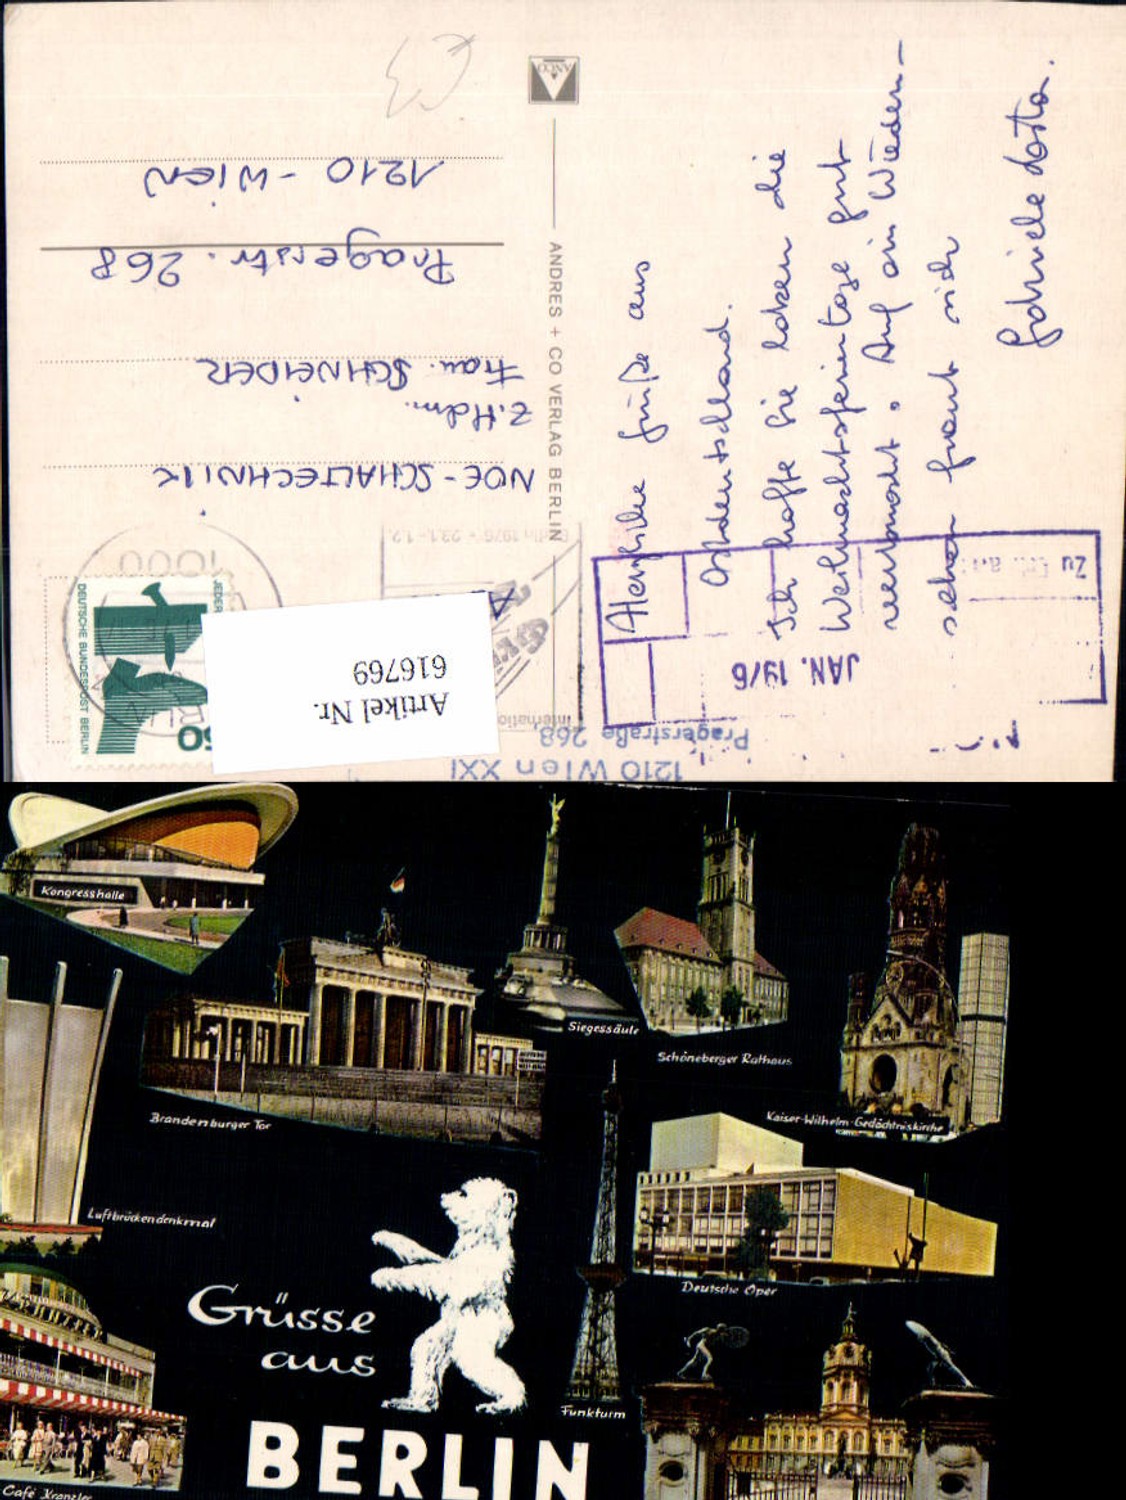 ANCO
ANDRES + CO VERLAG BERLIN
Herzliche Grüße aus
Ostdeutschland.
Ich hoffe Sie haben die
Weihnachtsferientage gut
verbracht. Auf ein Wieder-
sehen freut sich
NOE-SCHALTECHNIK
z. Hdn.
Frau. SCHNEIDER
Pragerstr. 268
1210 - WIEN
1000
DEUTSCHE BUNDESPOST BERLIN
60
JEDER
Artikel Nr.
616769
JAN. 1976
1210 Wien XXI
Pragerstraße 268
Kongresshalle
Siegessäule
Schöneberger Rathaus
Kaiser-Wilhelm-Gedächtniskirche
Brandenburger Tor
Luftbrückendenkmal
Deutsche Oper
Grüsse
aus
BERLIN
Funkturm
Café Kranzler